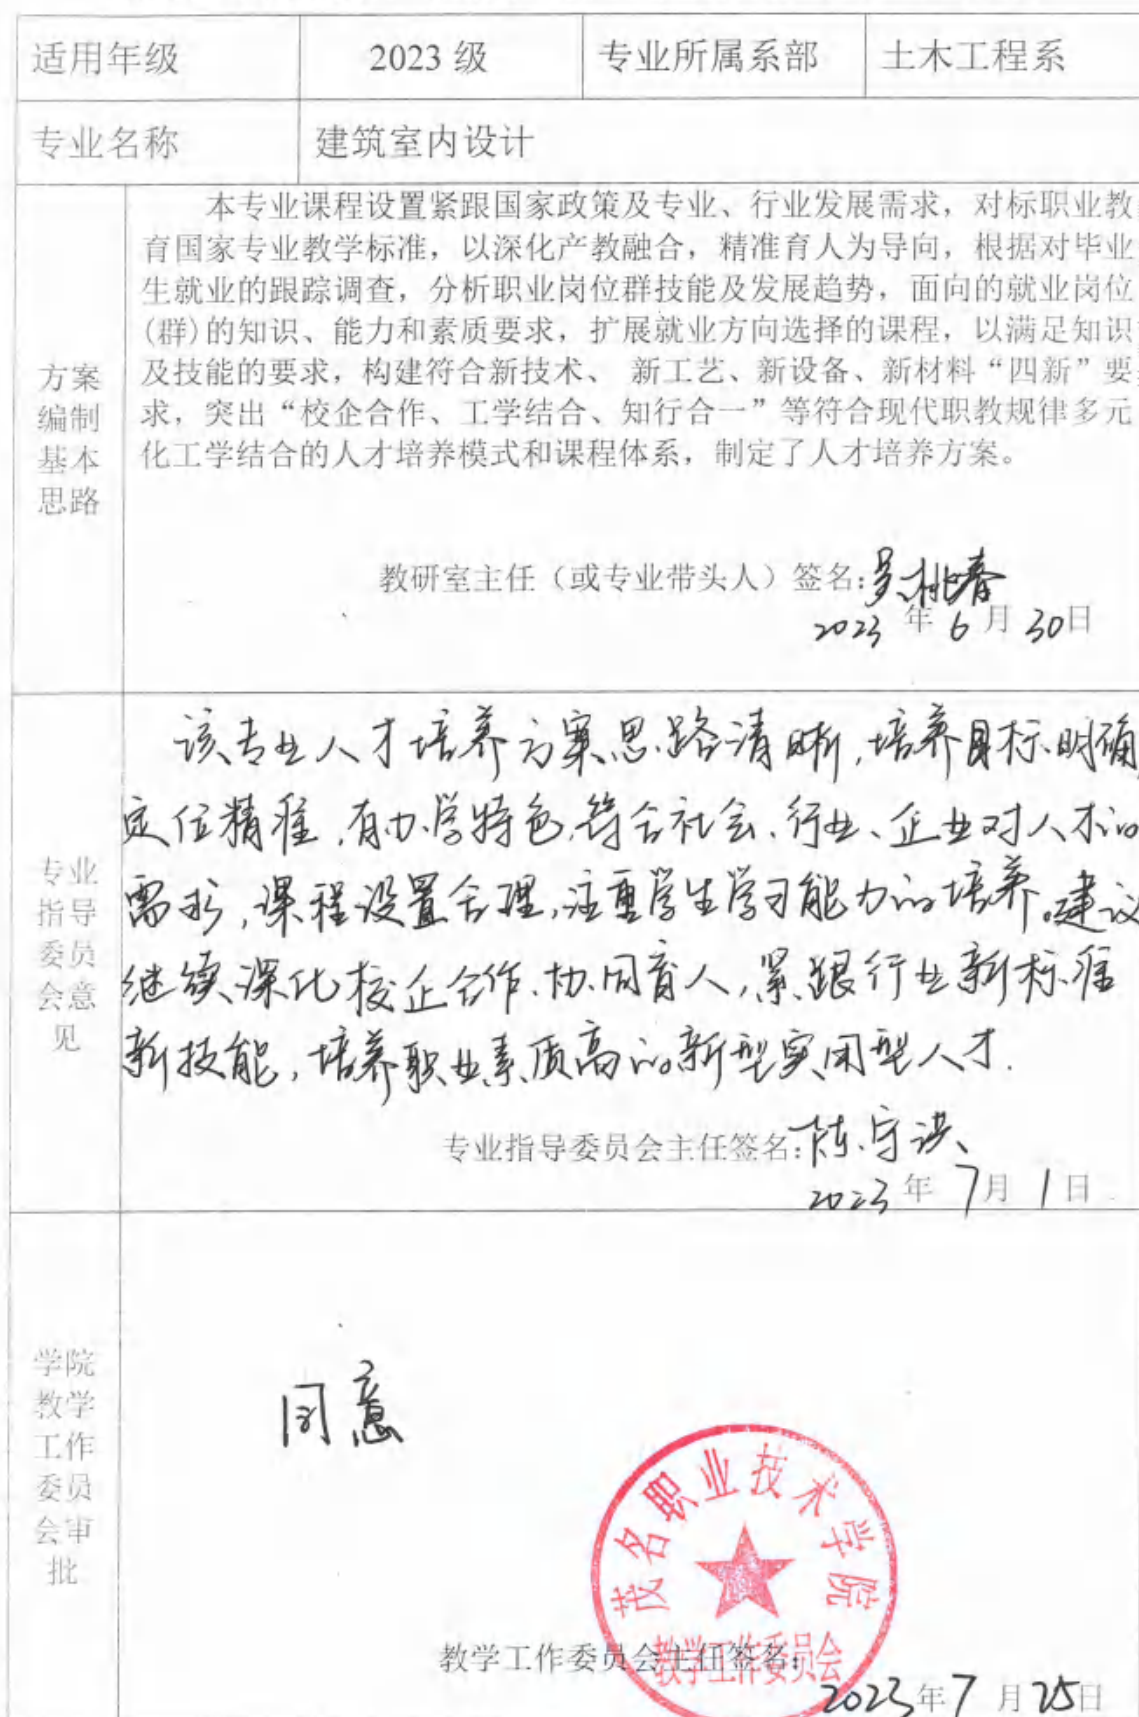 适用年级 2023 级 专业所属系部 土木工程系
专业名称 建筑室内设计
方案
编制
基本
思路
本专业课程设置紧跟国家政策及专业、行业发展需求，对标职业教
育国家专业教学标准，以深化产教融合，精准育人为导向，根据对毕业
生就业的跟踪调查，分析职业岗位群技能及发展趋势，面向的就业岗位
(群)的知识、能力和素质要求，扩展就业方向选择的课程，以满足知识
及技能的要求，构建符合新技术、 新工艺、新设备、新材料“四新”要
求，突出“校企合作、工学结合、知行合一”等符合现代职教规律多元
化工学结合的人才培养模式和课程体系，制定了人才培养方案。
教研室主任（或专业带头人）签名:吴桃春
2023 年 6 月 30日
专业
指导
委员
会意
见
该专业人才培养方案思路清晰,培养目标明确,
定位精准,有办学特色,符合社会、行业、企业对人才的
需求,课程设置合理,注重学生学习能力的培养。建议
继续深化校企合作、协同育人,紧跟行业新标准
新技能,培养职业素质高的新型实用型人才.
专业指导委员会主任签名:陈守洪
2023 年 7月 1日
学院
教学
工作
委员
会审
批
同意
茂名职业技术学院
教学工作委员会
教学工作委员会主任签名:
2023年7 月25日